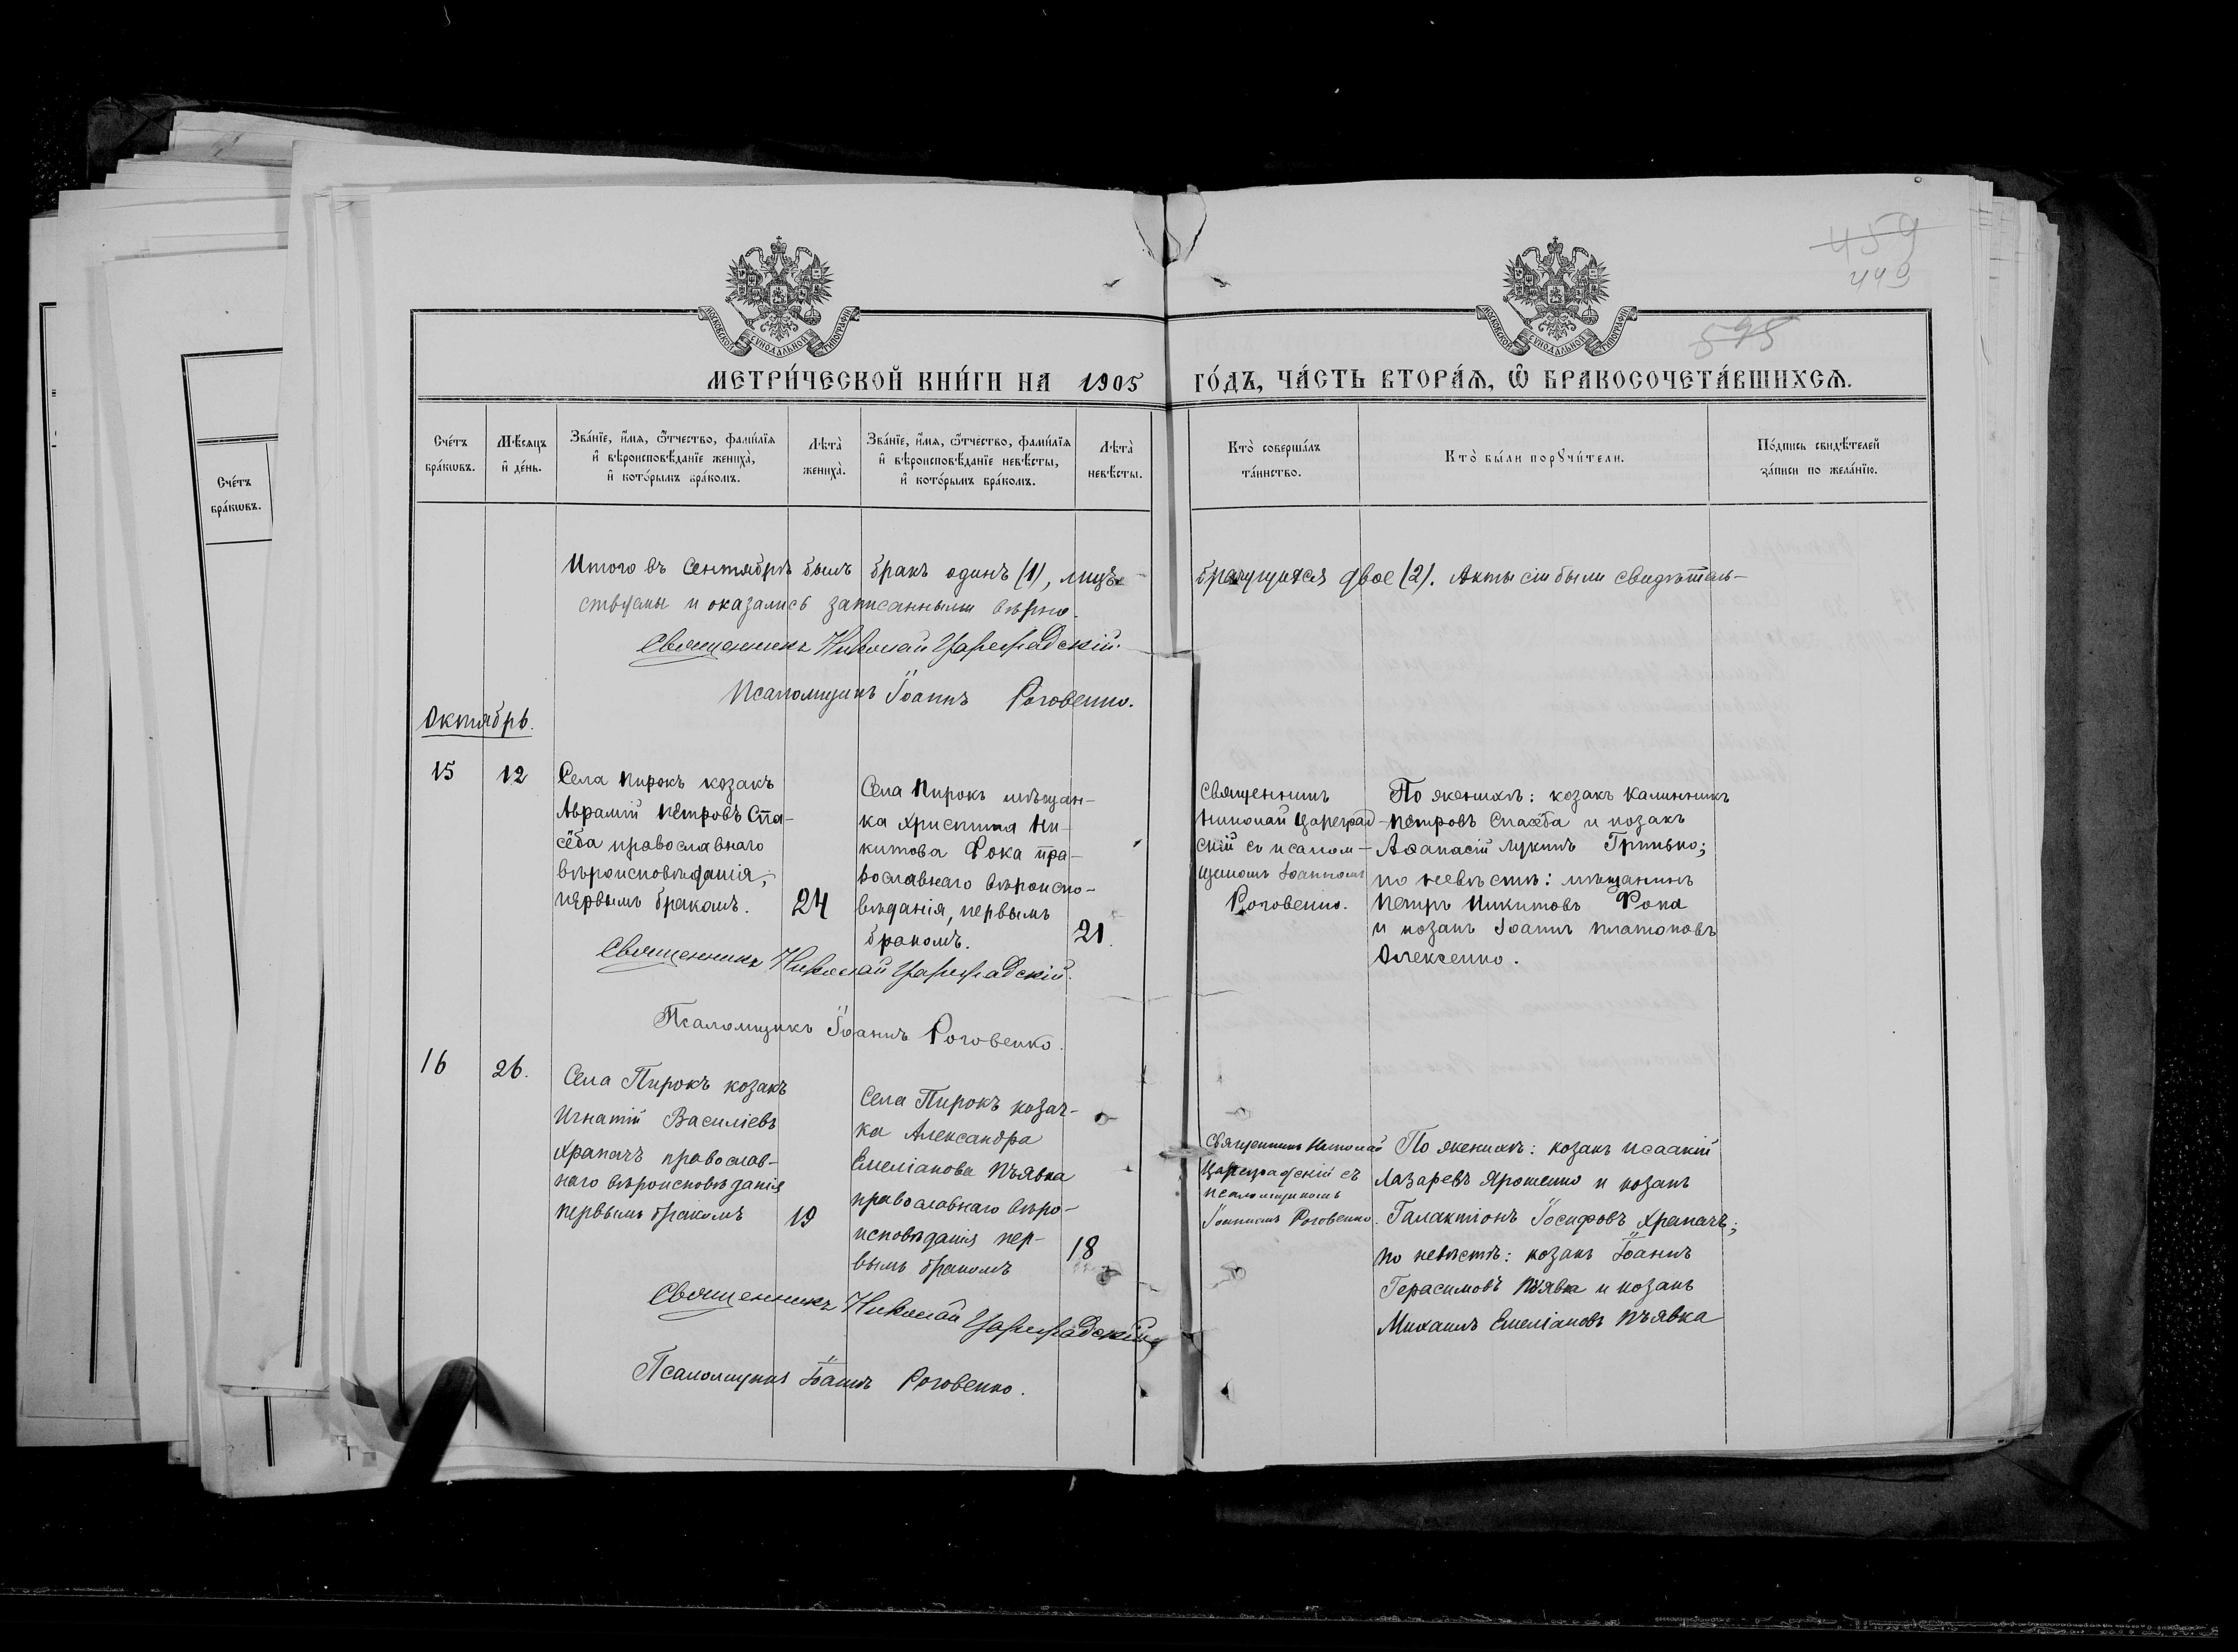 459
449
595
МОСКОВСКОЙ СѴНОДАЛЬНОЙ ТИПОГРАФІИ
МОСКОВСКОЙ СѴНОДАЛЬНОЙ ТИПОГРАФІИ
МЕТРИ́ЧЕСКОЙ КНИ́ГИ НА 1905 ГО́ДЪ, ЧА́СТЬ ВТОРА́Ѧ, Ѽ БРАКОСОЧЕТА́ВШИХСѦ.
Сче́тъ
бра́кѡвъ.
Сче́тъ
бра́кѡвъ.
Мѣ́сѧцъ
и҆ де́нь.
Зва́нїе, и҆́мѧ, ѻ҆́тчество, фами́лїѧ
и҆ вѣроисповѣ́данїе жениха̀,
и҆ кото́рымъ бра́комъ.
Лѣ́та̀
жениха̀.
Зва́нїе, и҆́мѧ, ѻ҆́тчество, фами́лїѧ
и҆ вѣроисповѣ́данїе невѣ́сты,
и҆ кото́рымъ бра́комъ.
Лѣ́та̀
невѣ́сты.
Кто̀ соверша́лъ
та́инство.
Кто̀ бы́ли порꙋчи́тели.
По́дпись свидѣ́телей
за́писи по жела́нїю.
Итого въ Сентябрѣ былъ бракъ одинъ (1), лицъ брачущихся двое (2). Акты сіи были свидѣтель-
ствуемы и оказались записанными вѣрно.
Священникъ Николай Цареградскій.
Псаломщикъ Іоаннъ Роговенко.
Октябрь.
15
12
Села Пирокъ козакъ
Аврамій Петровъ Спа-
сёба православнаго
вѣроисповѣданія,
первымъ бракомъ.
24
Села Пирокъ мѣщан-
ка Христина Ни-
китова Фока пра-
вославнаго вѣроиспо-
вѣданія, первымъ
бракомъ.
21.
Священникъ
Николай Цареград-
скій съ псалом-
щикомъ Іоанномъ
Роговенко.
По женихѣ: козакъ Калинникъ
Петровъ Спасёба и козакъ
Аѳанасій Лукинъ Гринько;
по невѣстѣ: мѣщанинъ
Петръ Никитовъ Фока
и козакъ Іоаннъ Платоновъ
Олексенко.
Священникъ Николай Цареградскій.
Псаломщикъ Іоаннъ Роговенко.
16
26.
Села Пирокъ козакъ
Игнатій Василіевъ
Храпачъ православ-
наго вѣроисповѣданія
первымъ бракомъ
19
Села Пирокъ козач-
ка Александра
Емеліанова Пъявка
православнаго вѣро-
исповѣданія пер-
вымъ бракомъ
18
Священникъ Николай
Цареградскій съ
псаломщикомъ
Іоанномъ Роговенко.
По женихѣ: козакъ Исаакій
Лазаревъ Ярошенко и козакъ
Галактіонъ Іосифовъ Храпачъ;
по невѣстѣ: козакъ Іоаннъ
Герасимовъ Пъявка и козакъ
Михаилъ Емеліановъ Пъявка
Священникъ Николай Цареградскій
Псаломщикъ Іоаннъ Роговенко.